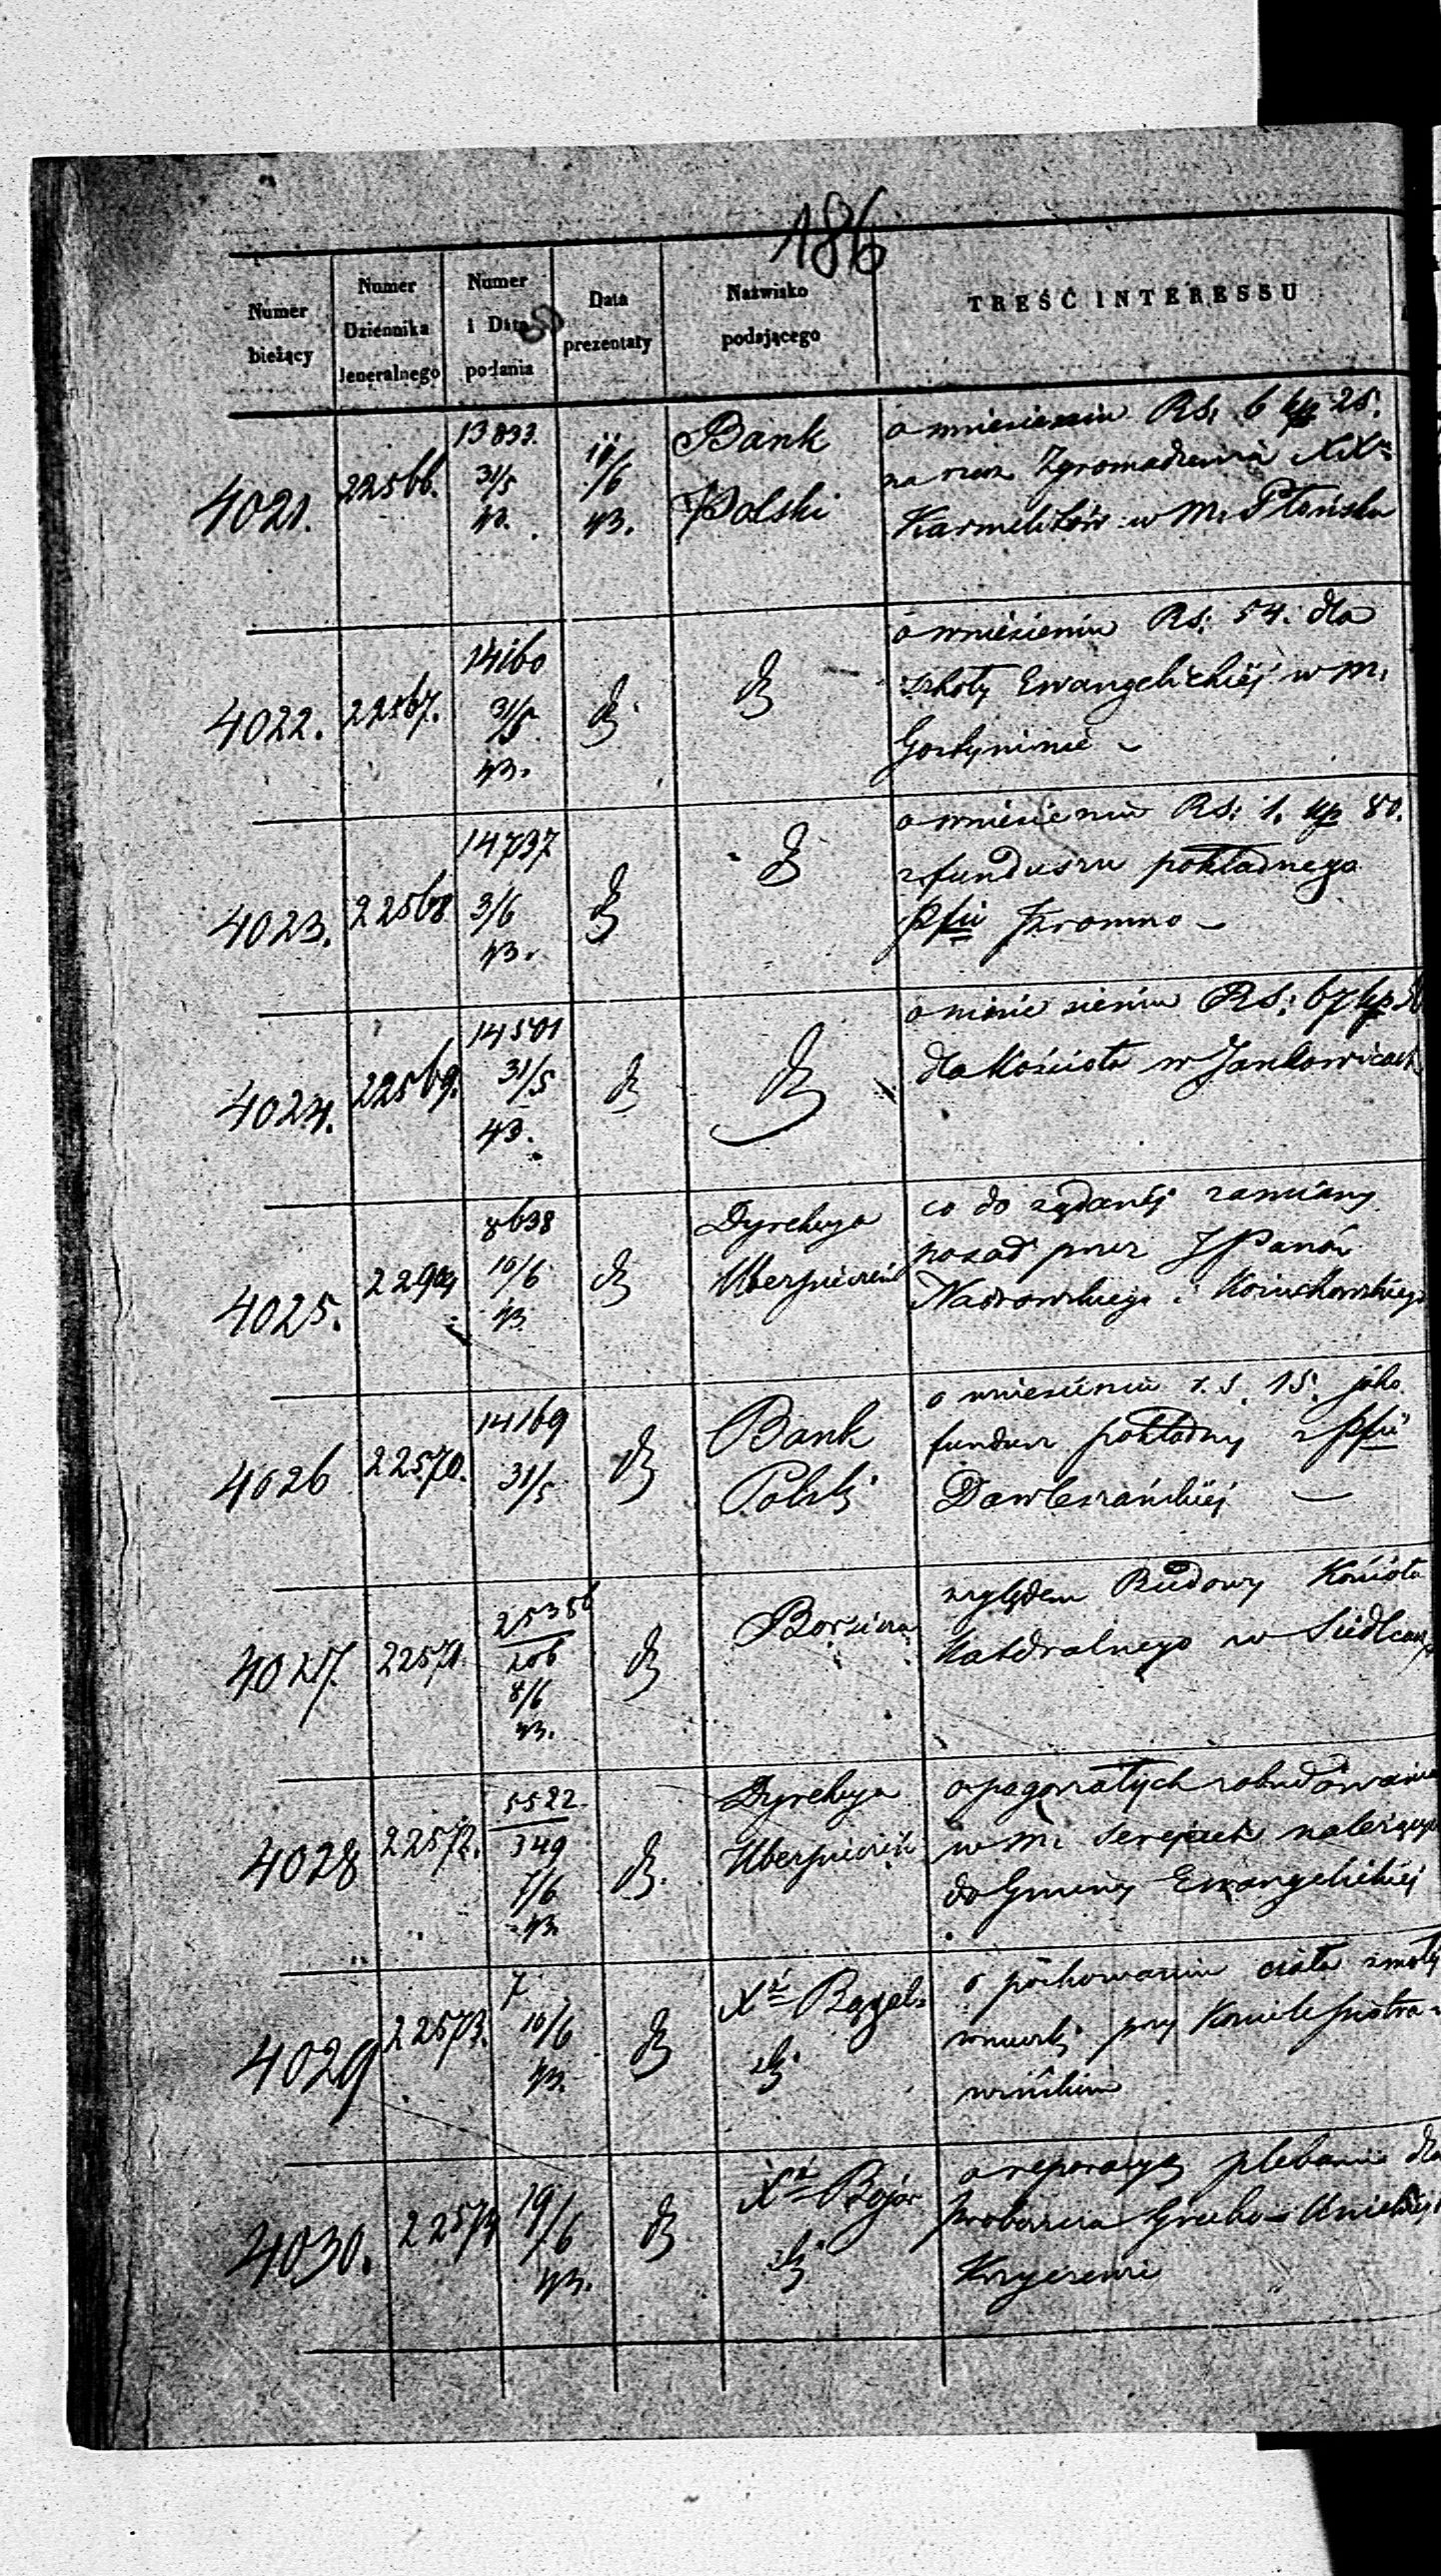 186
Numer bieżący
Numer Dziennika Jeneralnego
Numer i Data podania
Data prezentaty
Nazwisko podającego
TREŚĆ INTERESSU
4021.
22566.
13833.
31/5
43.
11/6
43.
Bank
Polski
o wniesieniu Rs: 6 kp 25.
na rzecz Zgromadzenia XX
Karmelitów w M. Płońsku
4022.
22567.
14160
31/5
43.
dt
dt
o wniesieniu Rs: 54. dla
szkoły Ewangelickiéj w M.
Gostyninie
4023.
22568
14737
3/6
43.
dt
dt
o wniesieniu Rs: 1. kp 80.
z funduszu pokładnego
4024.
22569.
14501
31/5
43.
dt
dt
o wniesieniu Rs: 67 kp
dla Kościoła w Jankowicach
4025.
8638
10/6
43
dt
Dyrekcya
Ubezpieczeń
co do żądanéj zamiany
posad przez JPanów
4026
22570.
14169
31/5
dt
Bank
Polski
o wniesieniu r.s. 15. jako
fundusz pokładny z
4027.
22571.
25386
206
8/6
43.
dt
względem Budowy Kościoła
Katedralnego w Siedlcach
4028
22572.
5522
349
7/6
43.
dt.
Dyrekcya
Ubezpieczeń
o pogorzałych zabudowania
w M. Serejach należących
do Gminy Ewangelickiéj
4029
22573.
7
10/6
43.
dt
o pochowaniu ciała
przy Kościele
4030.
22574
19/6
43.
dt
o reperacyą plebanii dla
Proboszcza Grecko-Unickiego